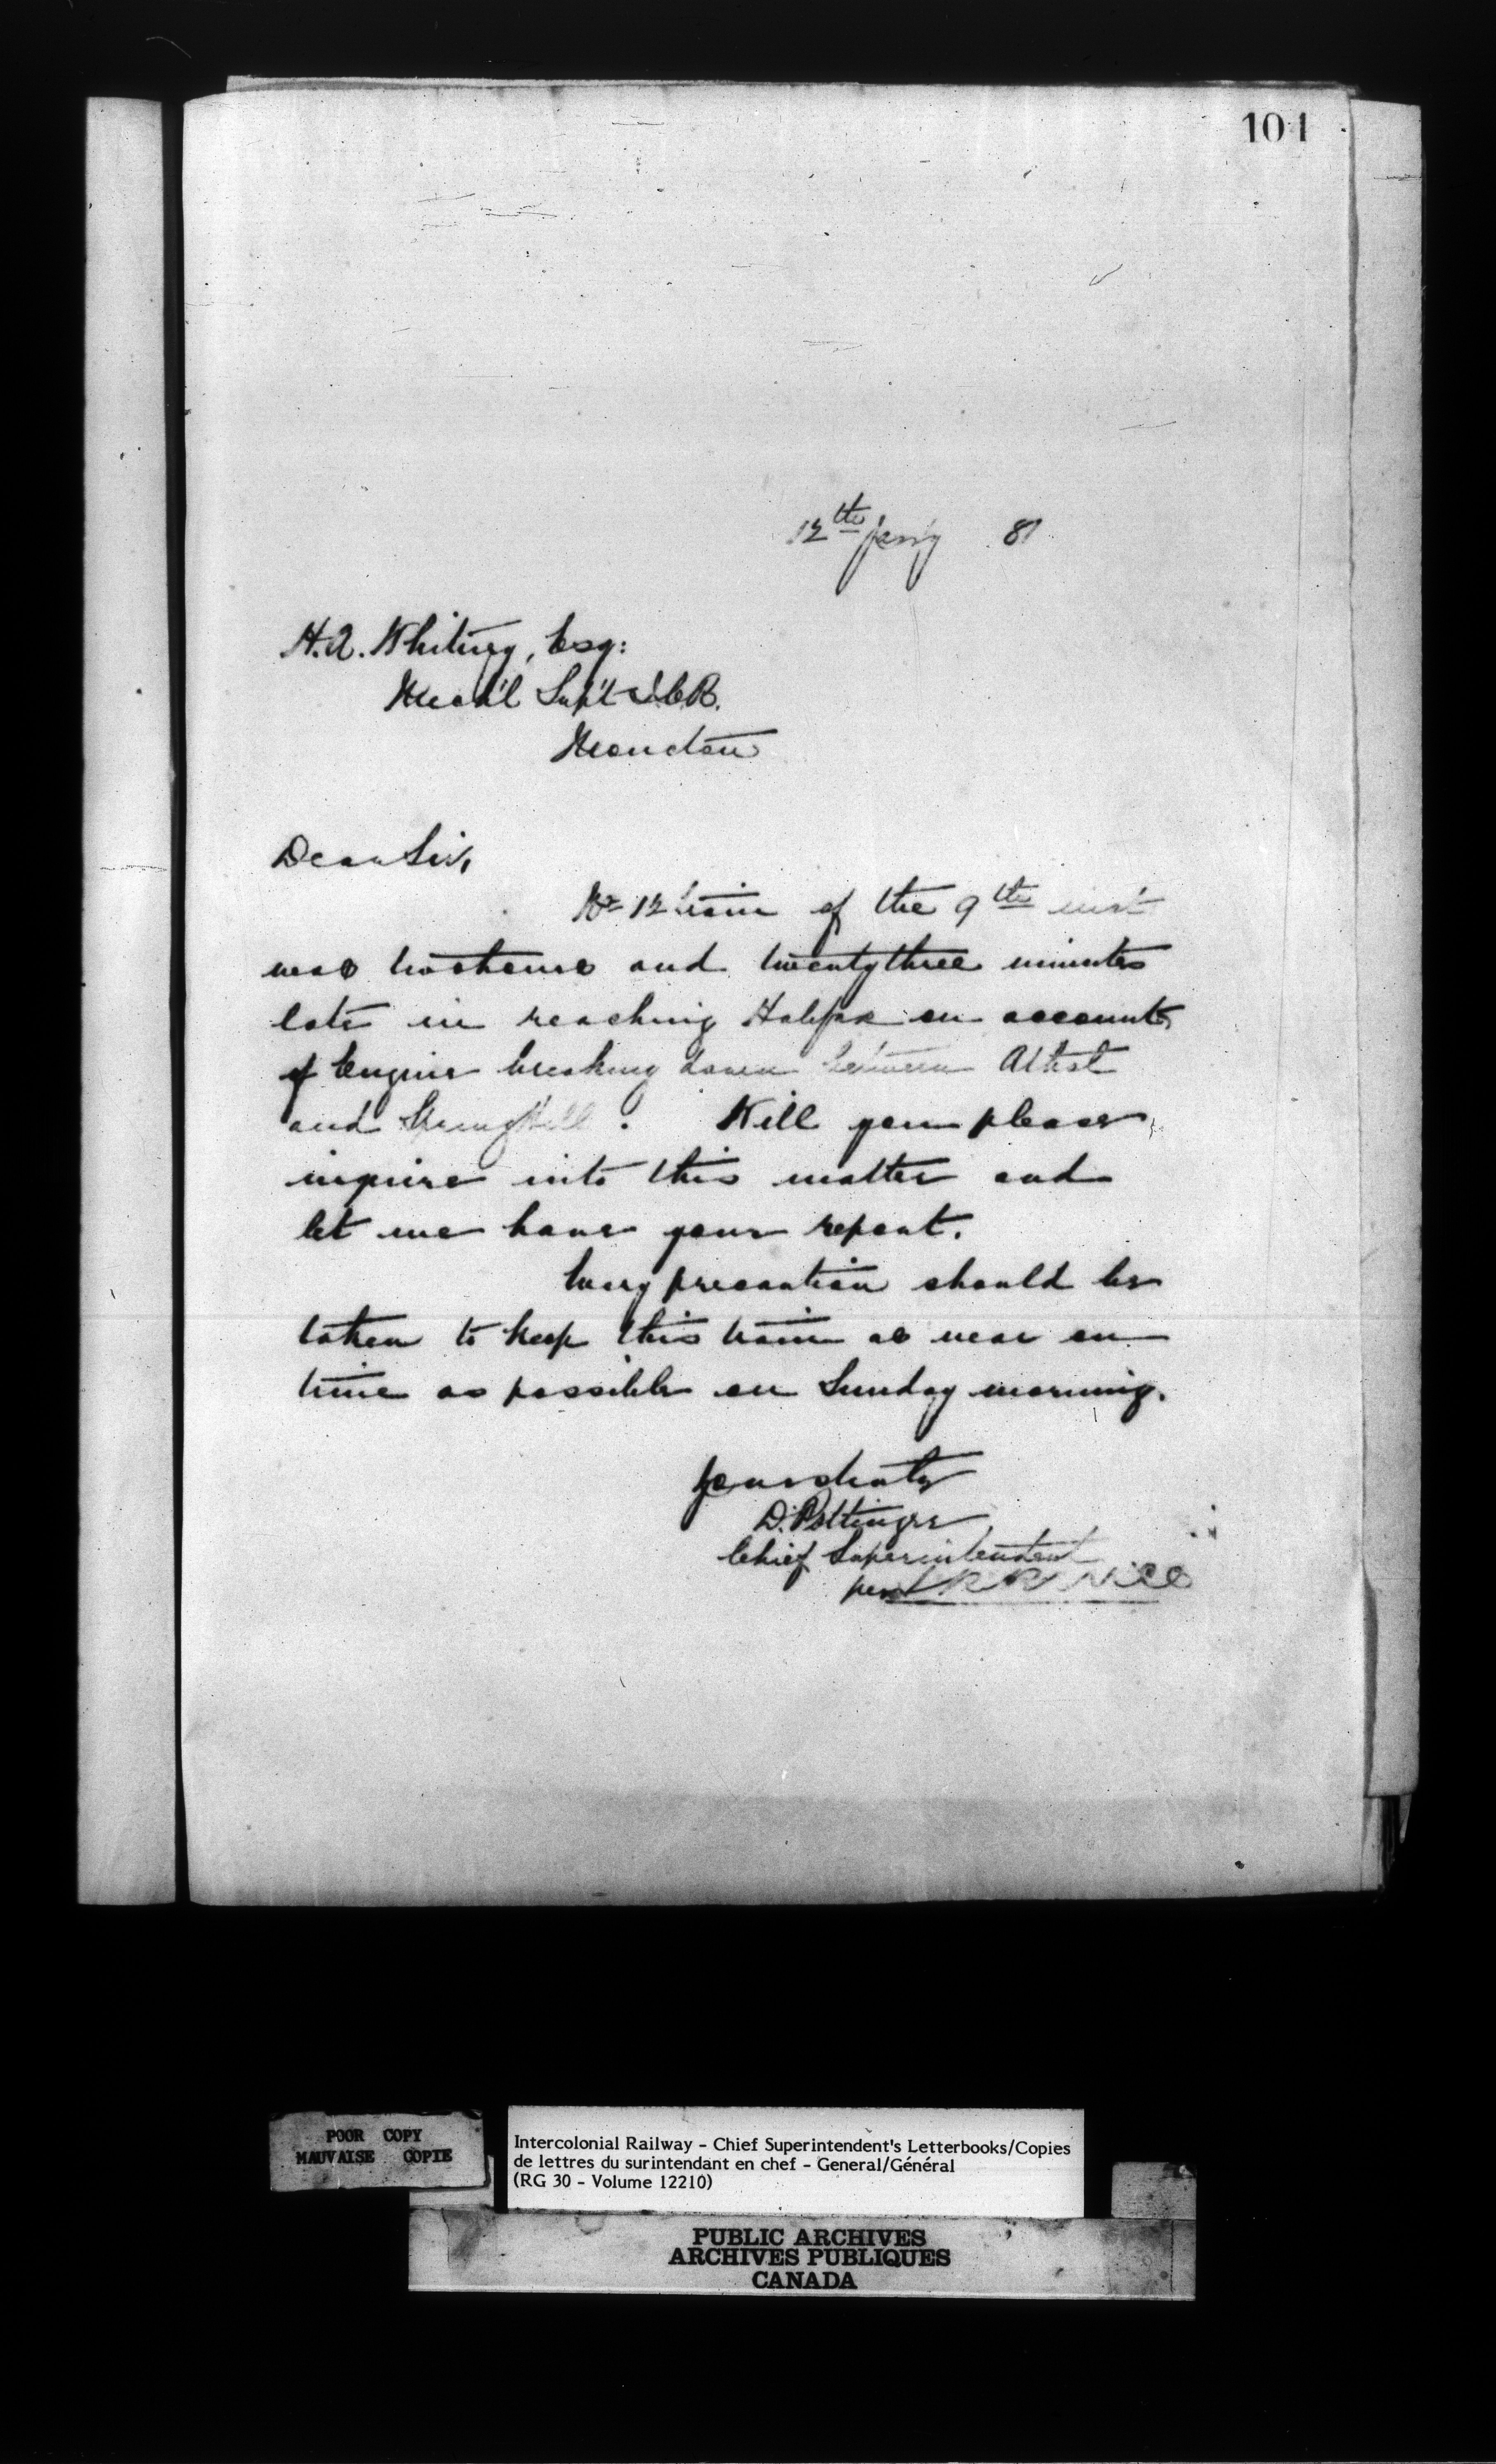 101
12th Jan'y 81
H.A. Whitney, Esq:
Mech'l Sup't I.C.R.
Moncton
Dear Sir,
No 12 train of the 9th inst
was two hours and twenty three minutes
late in reaching Halifax on account
of Engine breaking down between Athol
and Spring Hill. Will you please
inquire into this matter and
let me have your report.
Every precaution should be
taken to keep this train as near on
time as possible on Sunday morning.
Yours truly
D. Pottinger
Chief Superintendent
per
POOR COPY
MAUVAISE COPIE
Intercolonial Railway - Chief Superintendent's Letterbooks/Copies
de lettres du surintendant en chef - General/Général
(RG 30 - Volume 12210)
PUBLIC ARCHIVES
ARCHIVES PUBLIQUES
CANADA